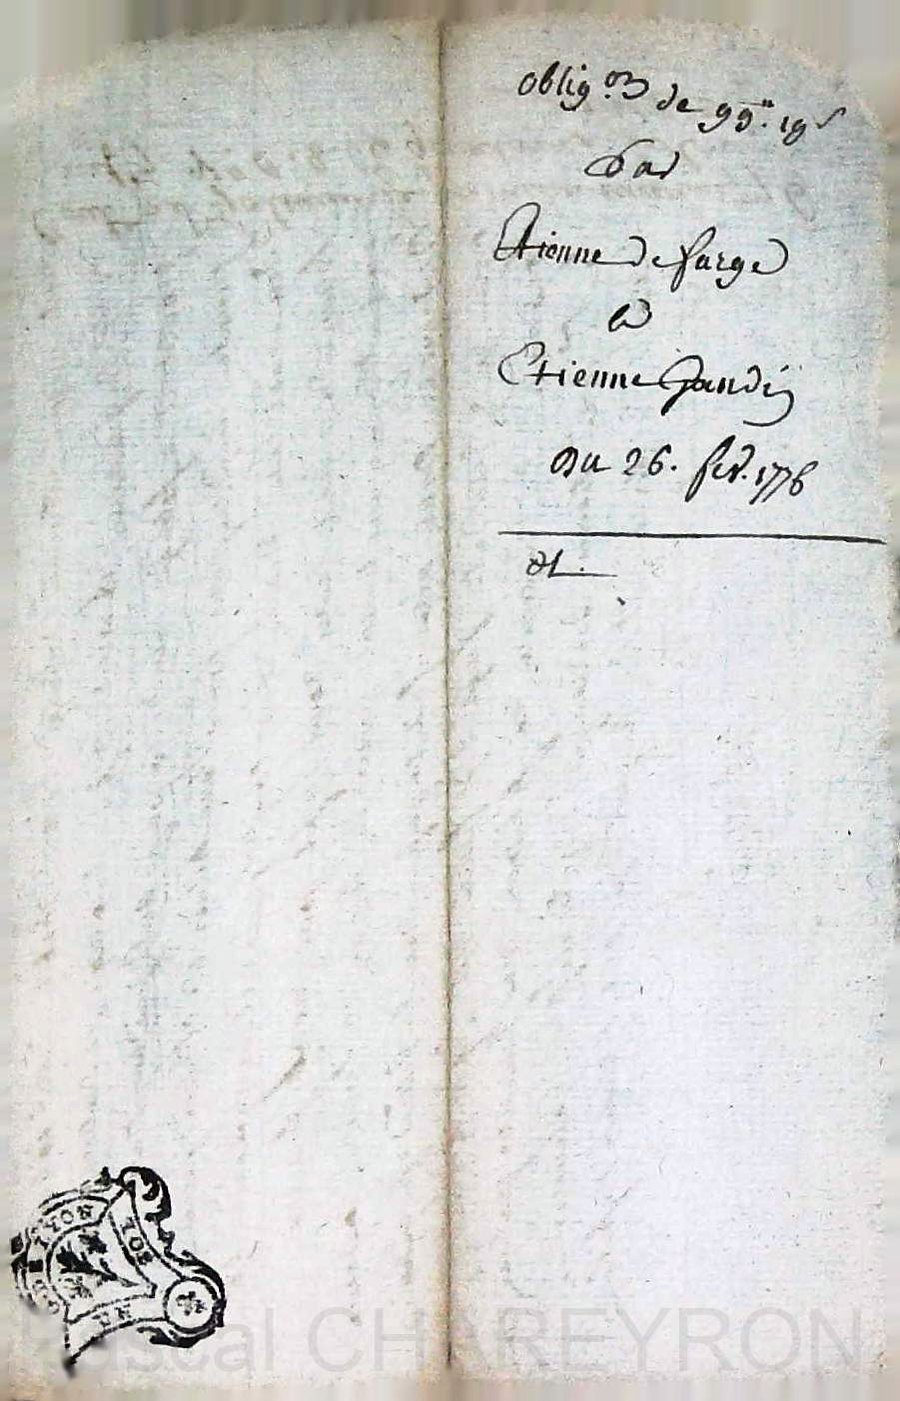 oblig.on de 99.tt 19 s
Par
Etienne Defarge
a
Etienne Gandÿ
Du 26. fev. 1776
LYON
SOL
UN
Pascal CHAREYRON